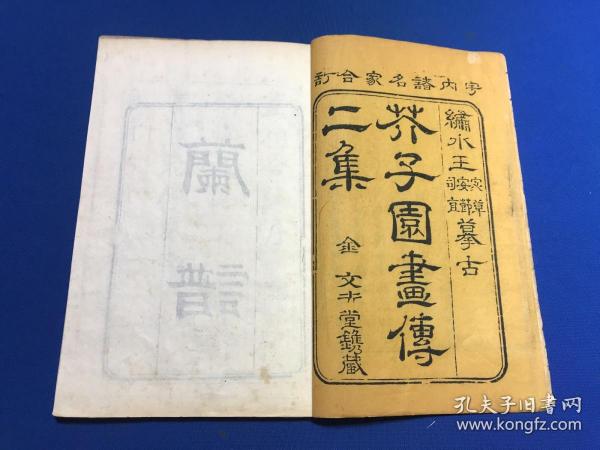 宇內諸名家合訂
繡水王宓草安節司直摹古
芥子園畫傳
二集
金文堂鐫藏
蘭譜
孔夫子旧书网
www.kongfz.com